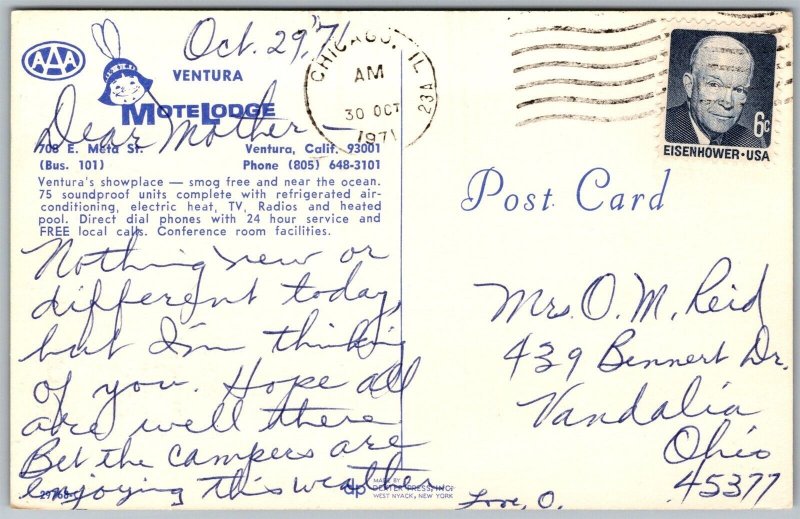 Oct. 29, 71
AAA
VENTURA
MOTELODGE
Dear Mother —
708 E. Meta St. Ventura, Calif. 93001
(Bus. 101) Phone (805) 648-3101
Ventura's showplace — smog free and near the ocean.
75 soundproof units complete with refrigerated air-
conditioning, electric heat, TV, Radios and heated
pool. Direct dial phones with 24 hour service and
FREE local calls. Conference room facilities.
Nothing new or
different today,
but I'm thinking
of you. Hope all
are well there
Bet the campers are
enjoying this weather
Love, O.
29768-C
dp MADE BY
DEXTER PRESS, INC.
WEST NYACK, NEW YORK
CHICAGO, IL
AM
30 OCT
1971
23A
6c
EISENHOWER·USA
Post Card
Mrs. O. M. Reid
439 Bennert Dr.
Vandalia
Ohio
45377